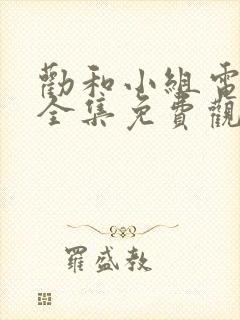 勸和小組電
全集免費觀
羅盛教